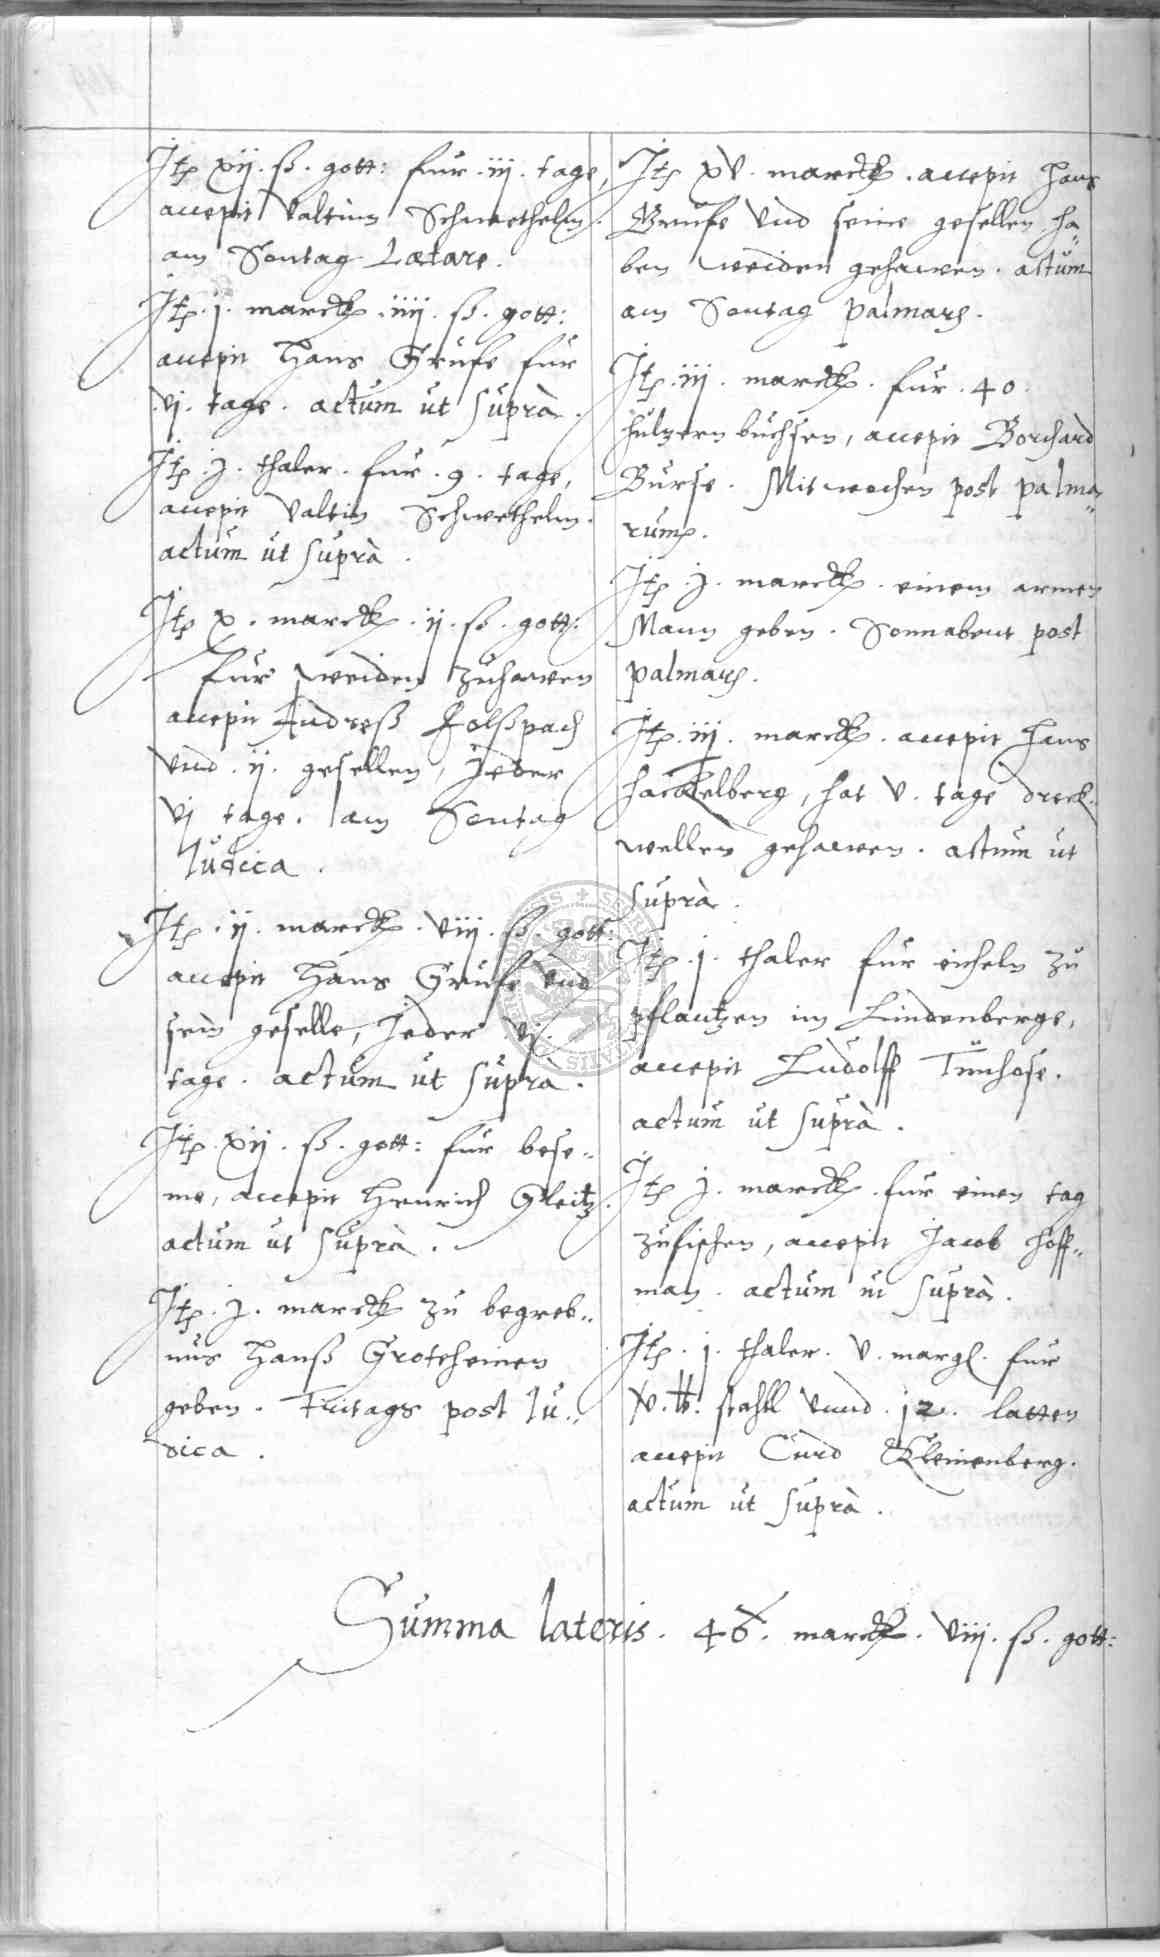 Jtem xij. ß. gott: fur .iij. tage,
accepit Valtinn Schwethelm.
am Sontag Lætare.
Jtem .j. marck .iiij. ß. gott:
accepit Hans Grufe fur
.vj. tage. actum ut suprà.
Jtem .j. thaler. fur .9. tage,
accepit Valtin Schwethelm.
actum ut suprà.
Jtem x. marck. ij. ß. gott:
fur weiden zuhawen
accepit Andreß
vnd .ij. gesellen, Jeder
vj tage. am Sontag
Iudica.
Jtem .ij. marck. viij. ß. gott:
accepit Hans Grufe vnd
sein geselle, Jeder vj.
tage. actum ut suprà.
Jtem xij. ß. gott: fur bese-,,
me, accepit Henrich Gleitz.
actum ut suprà.
Jtem .j. marck zu begreb,,
nus Hanß Grotheinen
geben. Freitags post Iu,,
dica.
Jtem xv. marck. accepit Hans
Grufe vnd seine gesellen ha,,
ben weiden gehawen. actum
am Sontag Palmarum.
Jtem .iij. marck. fur .40.
hultzern buchsen, accepit Borchard
Burse. Mitwochen post palma,,
rum.
Jtem .j. marck. einem armen
Mann geben. Sonnabent post
palmarum.
Jtem .iij. marck. accepit Hans
Hackelberg, hat v. tage dreck,,
wellen gehawen. actum ut
suprà.
Jtem .j. thaler fur eicheln zu
pflantzen im Lindenberge,
accepit Ludolff Timhose.
actum ut suprà.
Jtem j. marck. fur einen tag
zufischen, accepit Jacob Hoff,,
man. actum ut suprà.
Jtem .j. thaler. v. margl. fur
stahll vnnd .12. latten
accepit Curd Kleinenberg.
actum ut suprà.
Summa lateris. 46. marck. viij. ß. gott: